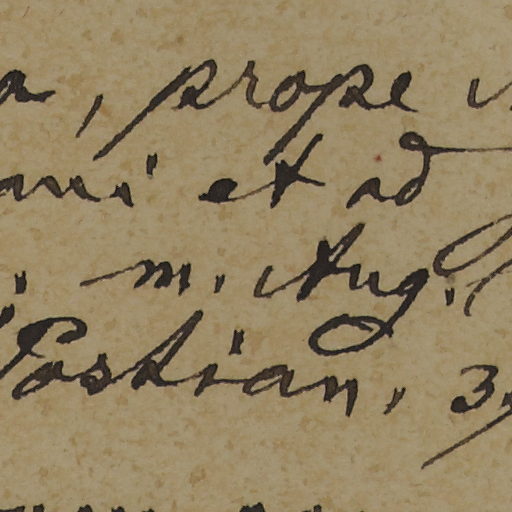 a, prope
ani et ad
. m. Aug.
Postian. 3